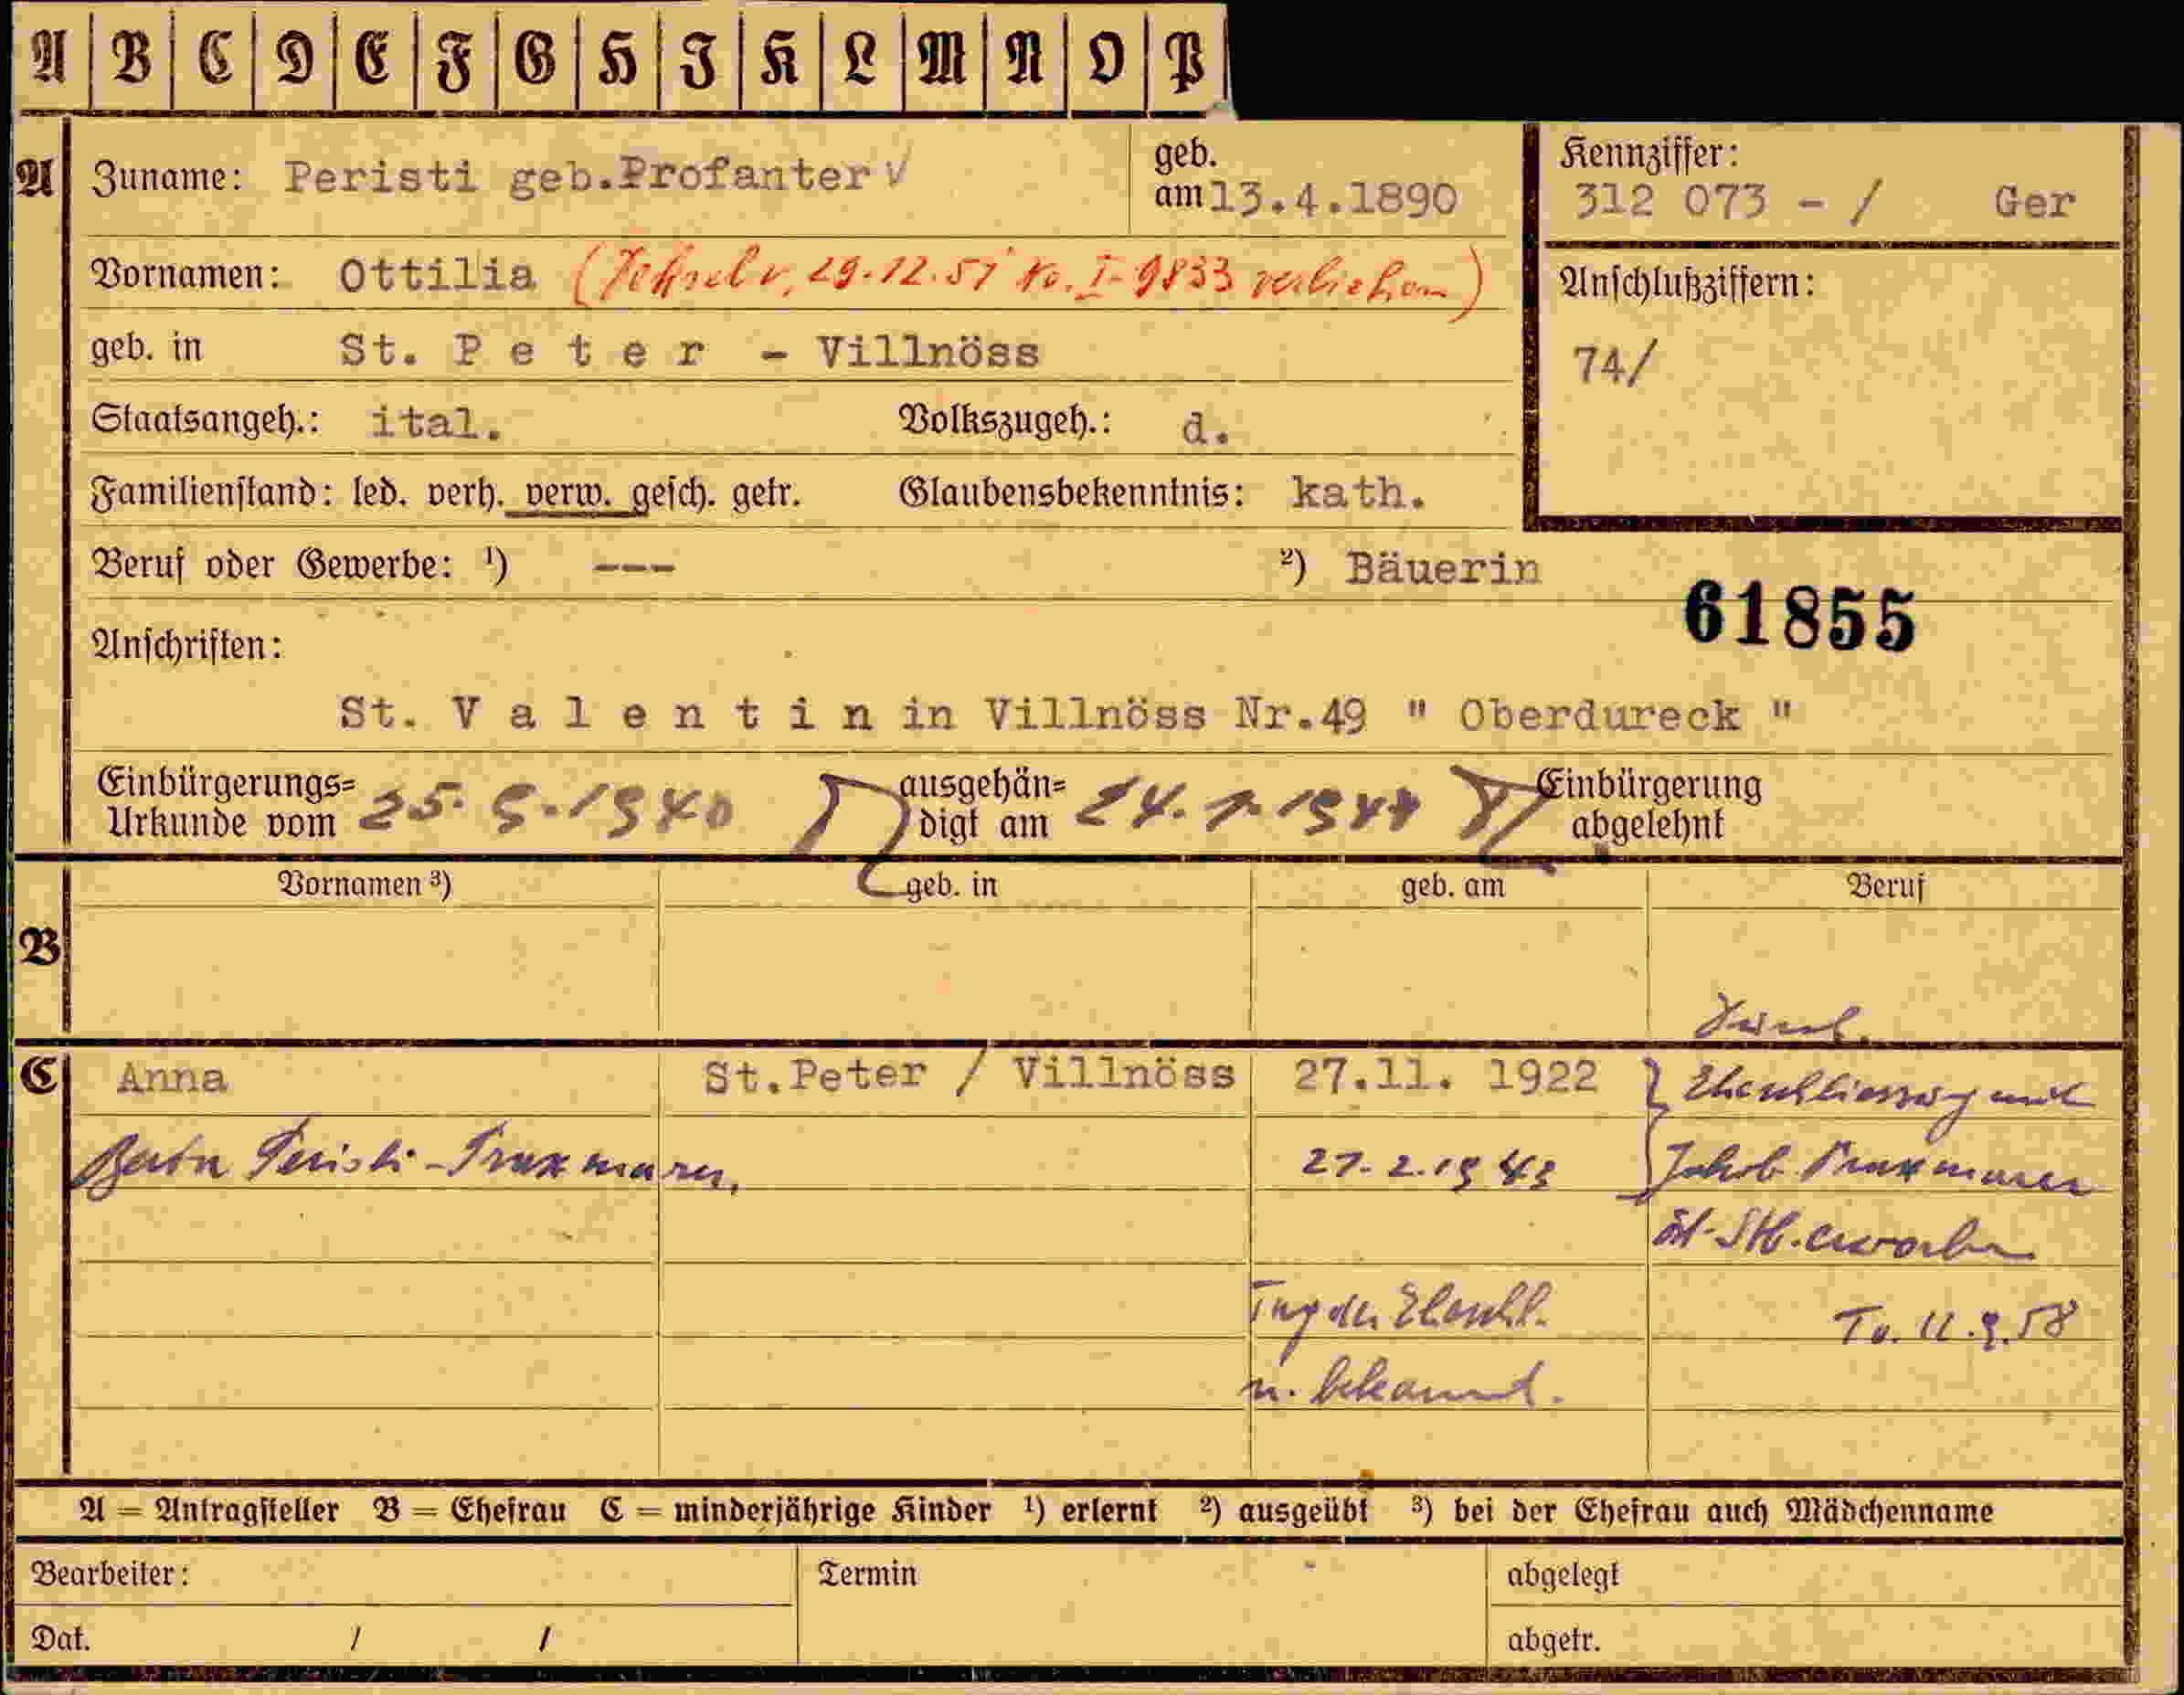 A B C D E F G H I K L M N O P
A
Zuname: Peristi geb.Profanter √
geb. am 13.4.1890
Kennziffer:
312 073 - / Ger
Vornamen: Ottilia (Dekret v. 29.12.51 No. I-9833 verliehen)
Anschlußziffern:
74/
geb. in St. P e t e r - Villnöss
Staatsangeh.: ital. Volkszugeh.: d.
Familienstand: led. verh. verw. gesch. getr. Glaubensbekenntnis: kath.
Beruf oder Gewerbe: ¹) --- ²) Bäuerin
61855
Anschriften:
St. V a l e n t i n in Villnöss Nr.49 " Oberdureck "
Einbürgerungs=
Urkunde vom 25.5.1940
ausgehän=
digt am 24.7.1944
Einbürgerung
abgelehnt
Vornamen ³) geb. in geb. am Beruf
B
Durch
C Anna St.Peter / Villnöss 27.11. 1922 Eheschliessung mit
Berta Peristi - Praxmarer, 27.2.1943 Jakob Praxmarer
öst. Stb. erworben
Tag der Eheschl.
To. 11.9.58
n. bekannt.
A = Antragsteller B = Ehefrau C = minderjährige Kinder ¹) erlernt ²) ausgeübt ³) bei der Ehefrau auch Mädchenname
Bearbeiter: Termin abgelegt
Dat. / / abgetr.